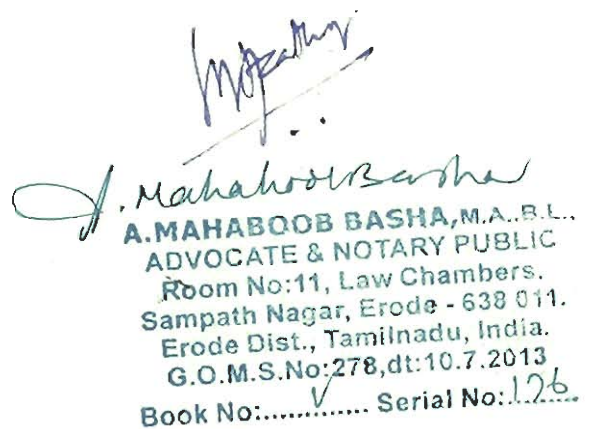 A. Mahaboob Basha
A.MAHABOOB BASHA,M.A.,B.L.,
ADVOCATE & NOTARY PUBLIC
Room No:11, Law Chambers.
Sampath Nagar, Erode - 638 011.
Erode Dist., Tamilnadu, India.
G.O.M.S.No:278,dt:10.7.2013
Book No:......V....... Serial No:.126.....